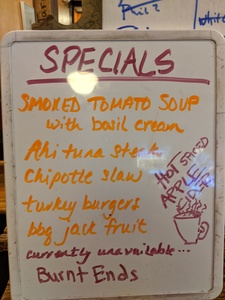 Phil?
White
SPECIALS
SMOKED TOMATO SOUP
with basil cream
Ahi tuna steak
Chipotle slaw
turkey burgers
bbq jack fruit
HOT SPICED
APPLE
CIDER
currently unavailable...
Burnt Ends